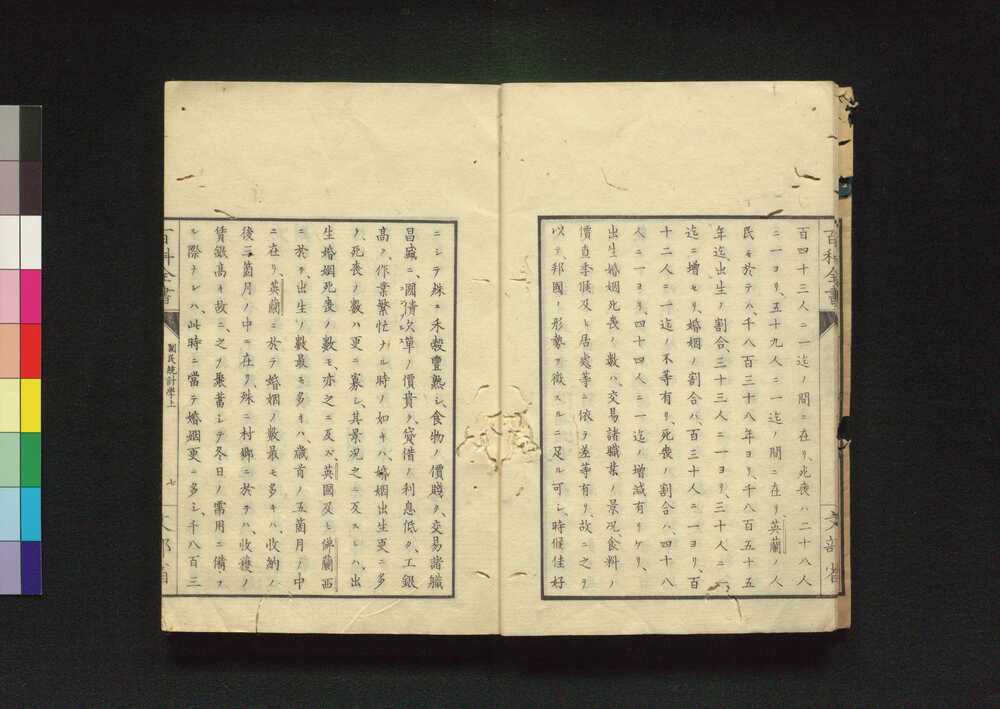 百四十三人ニ一迄ノ間ニ在リ、死喪ハ二十八人
ニ一ヨリ、五十九人ニ一迄ノ間ニ在リ、英蘭ノ人
民ニ於テハ、千八百三十八年ヨリ千八百五十五
年迄、出生ノ割合、三十三人ニ一ヨリ、三十人ニ一
迄ニ増セリ、婚姻ノ割合ハ、百三十人ニ一ヨリ、百
十二人ニ一迄ノ不等有リ、死喪ノ割合ハ、四十八
人ニ一ヨリ、四十四人ニ一迄ノ増減有リケリ、
出生婚姻死喪ノ數ハ、交易諸職業ノ景况、食料ノ
價直季候及ヒ居處等ニ依テ差等有リ、故ニ之ヲ
以テ、邦國ノ形勢ヲ徴スルニ足ル可シ、時候佳好
ニシテ殊ニ禾穀豐熟シ、食物ノ價賤ク、交易諸職
昌盛ニ、國債欠單ノ價貴ク、貸借ノ利息低ク、工銀
高ク、作業繁忙ナル時ノ如キハ、婚姻出生更ニ多
ク、死喪ノ數ハ更ニ寡シ、其景况之ニ反スレハ、出
生婚姻死喪ノ數モ、亦之ニ反ス、英國及ヒ佛蘭西
ニ於テ出生ノ數最モ多キハ、歳首ノ五箇月ノ中
ニ在リ、英蘭ニ於テ婚姻ノ數最モ多キハ、收納ノ
後三箇月ノ中ニ在リ、殊ニ村鄉ニ於テハ、收穫ノ
賃銀高キ故ニ、之ヲ聚蓄シテ冬日ノ需用ニ備フ
ル際ナレハ、此時ニ當テ婚姻更ニ多シ、千八百三
百科全書
國民統計學上
七
文部省